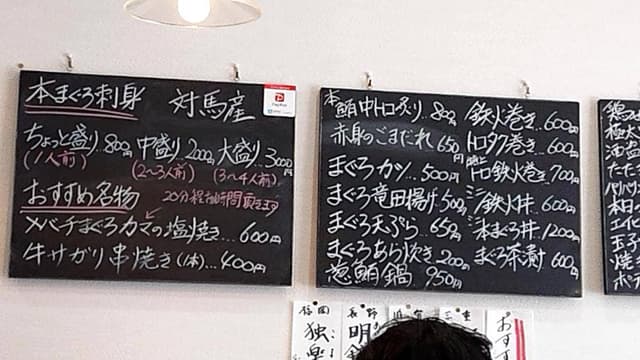 本まぐろ刺身 対馬産
ちょっと盛り 800円 中盛り 2000円 大盛り 3000円
(1人前) (2〜3人前) (3〜4人前)
おすすめ名物 20分程お時間頂きます
メバチまぐろカマの塩焼き…600円
牛サガリ串焼き(1本)…400円
本鮪中トロ炙り 800円
赤身のごまだれ 650円
まぐろカツ…500円
まぐろ竜田揚げ 500円
まぐろ天ぷら…650円
まぐろあら炊き 200円
葱鮪鍋 950円
鉄火巻き…600円
トロタク巻き…600円
トロ鉄火巻き…700円
ミニ鉄火丼…600円
ミニ本まぐろ丼…1200円
まぐろ茶漬…600円
福岡
独楽
長野
明鏡
おすす